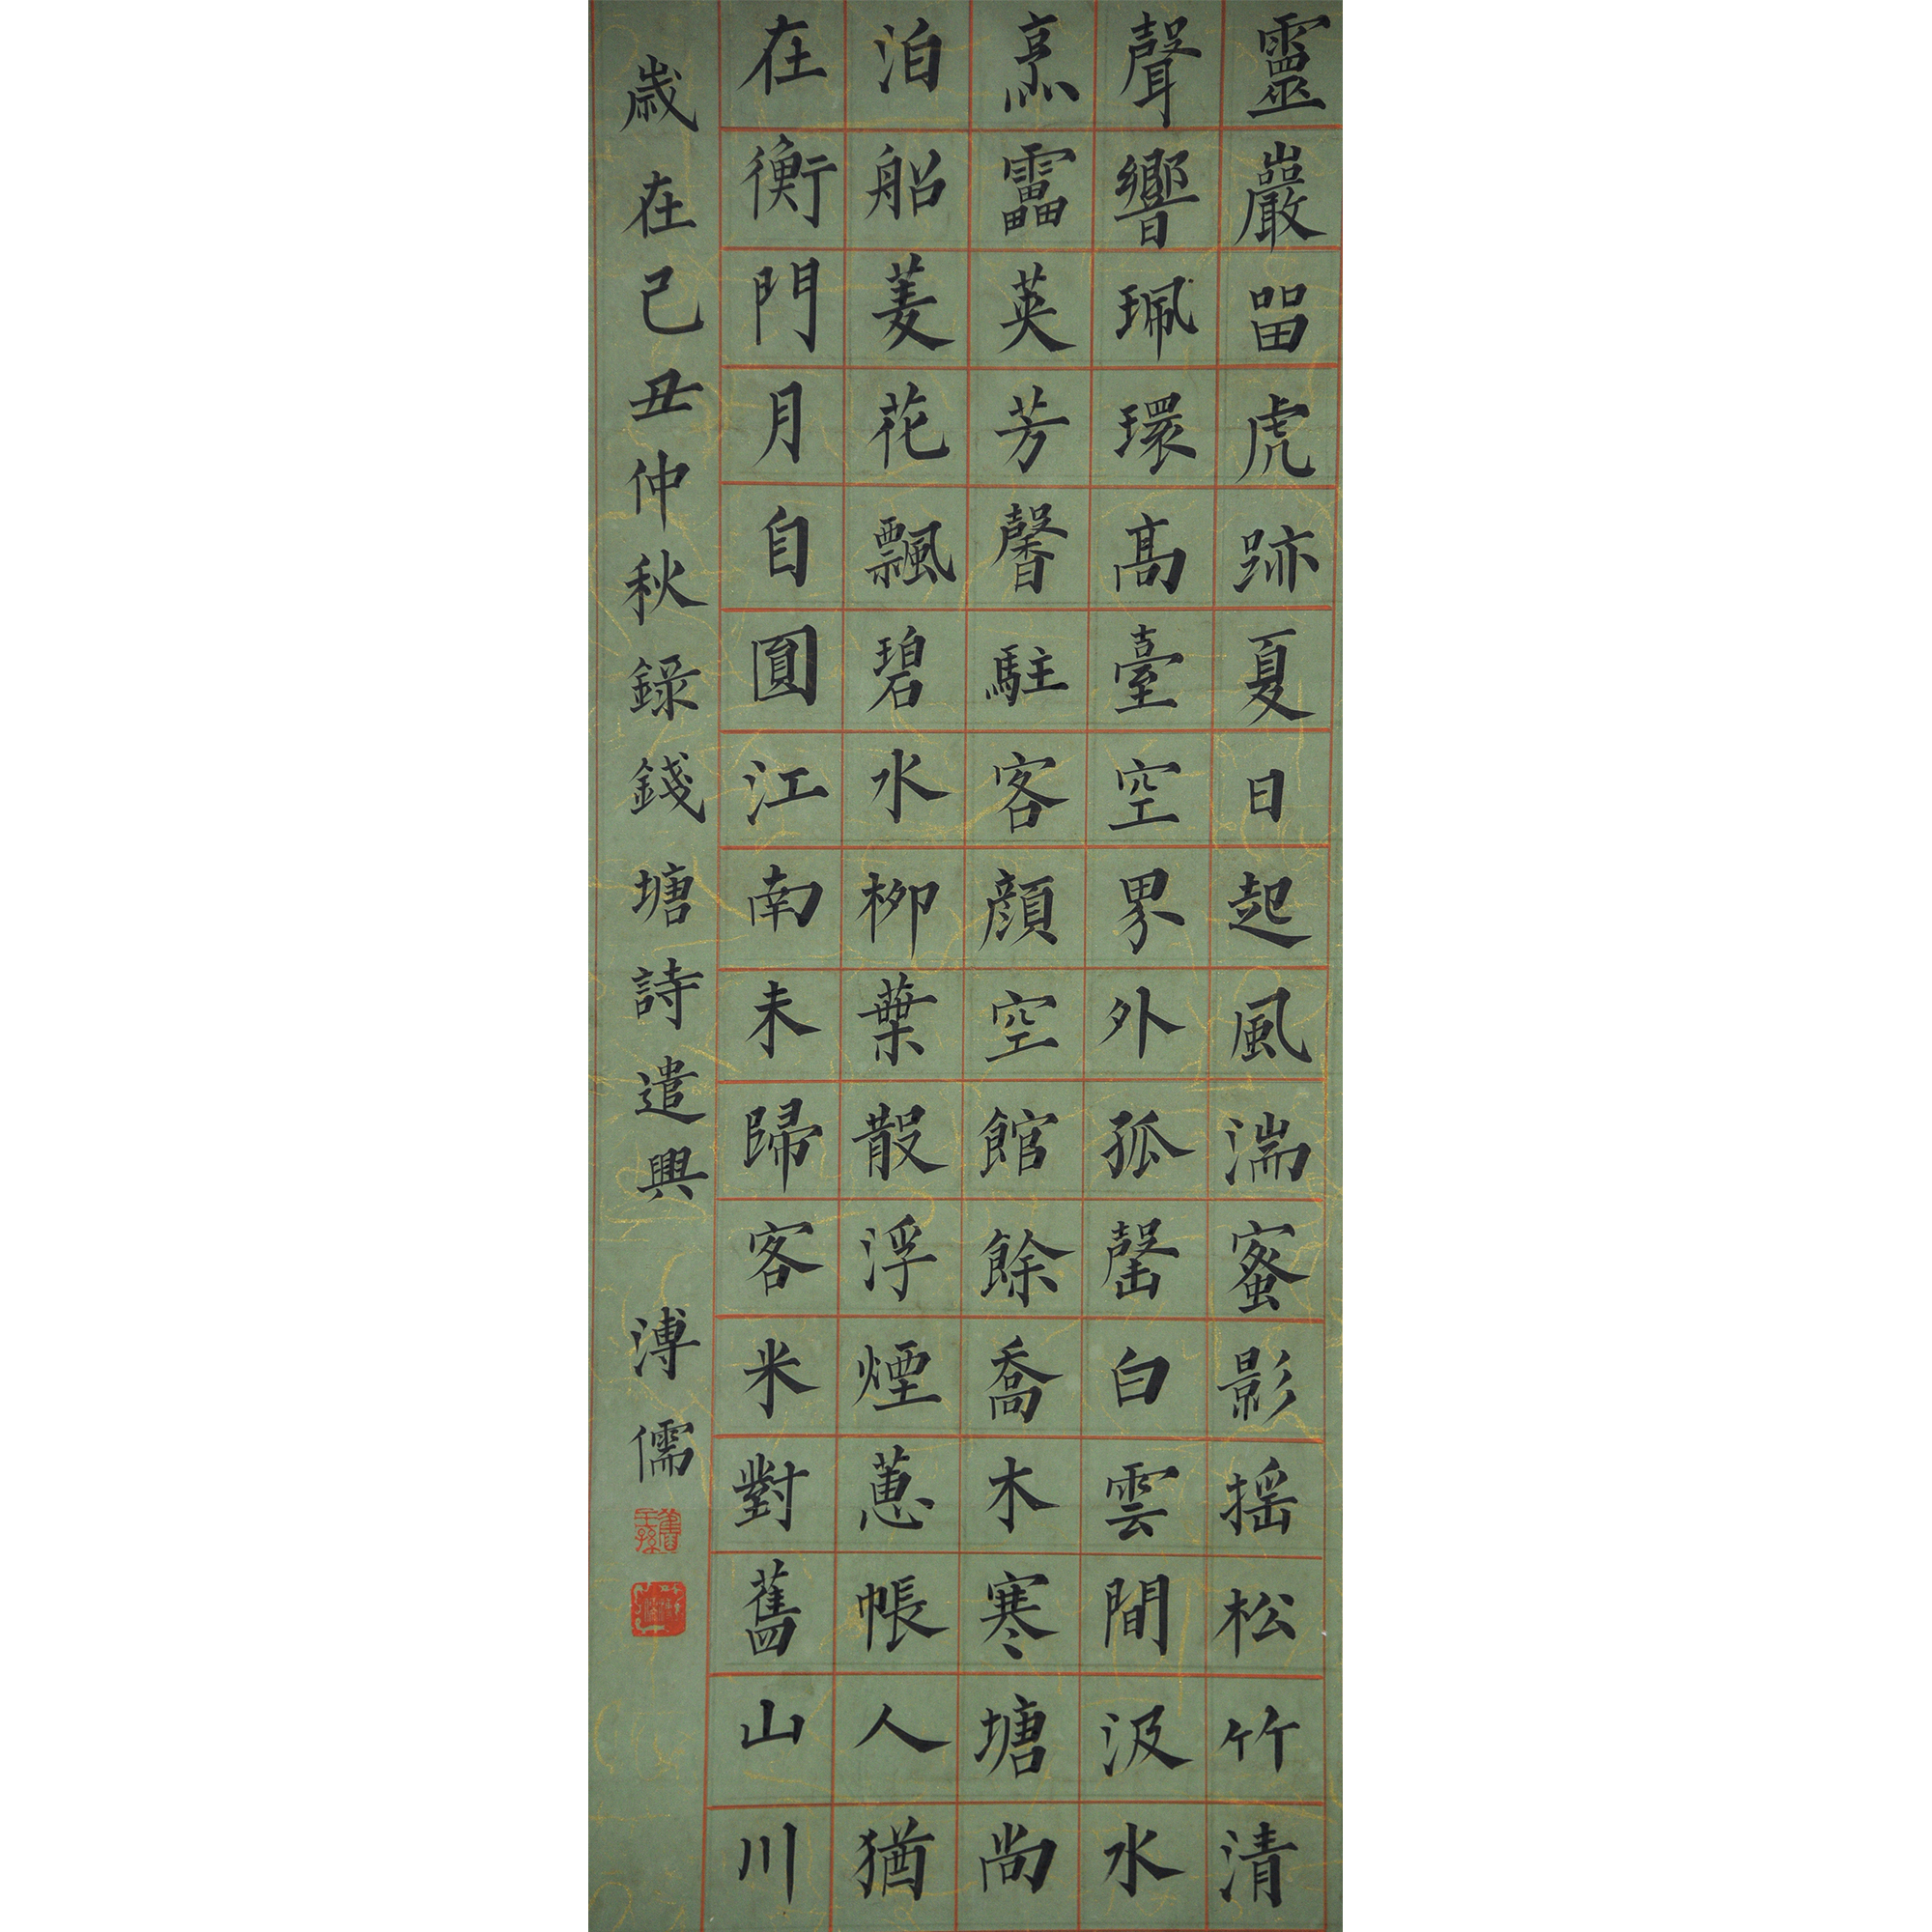 靈巖畱虎跡夏日起風湍蜜影搖松竹清
聲響珮環高臺空界外孤罄白雲間汲水
烹靁英芳馨駐客顏空館餘喬木寒塘尚
泊船菱花飄碧水柳葉散浮煙蕙帳人猶
在衡門月自圓江南未歸客米對舊山川
歲在己丑仲秋錄錢塘詩遣興 溥儒